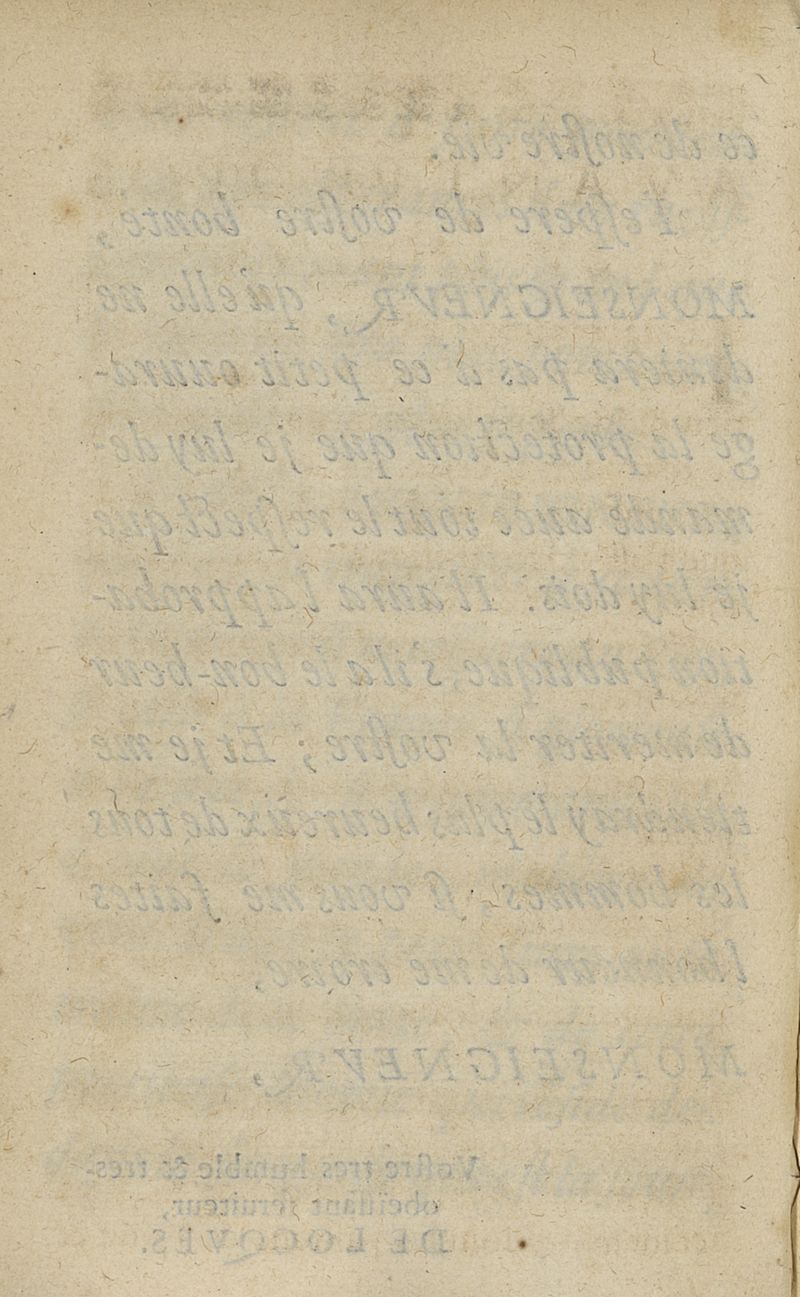 ce de nostre vie.
J'espere de vostre bonté,
MONSEIGNEVR, qu'elle ne
deniera pas à ce petit ouura-
ge la protection que je luy de-
mande auec tout le respect que
je luy dois. Il aura l'approba-
tion publique, s'il a le bon-heur
de meriter la vostre; Et je me
tiendray le plus heureux de tous
les hommes, si vous me faites
l'honneur de me croire,
MONSEIGNEVR,
Vostre tres humble & tres-
obeissant seruiteur,
DE LOCQVES.